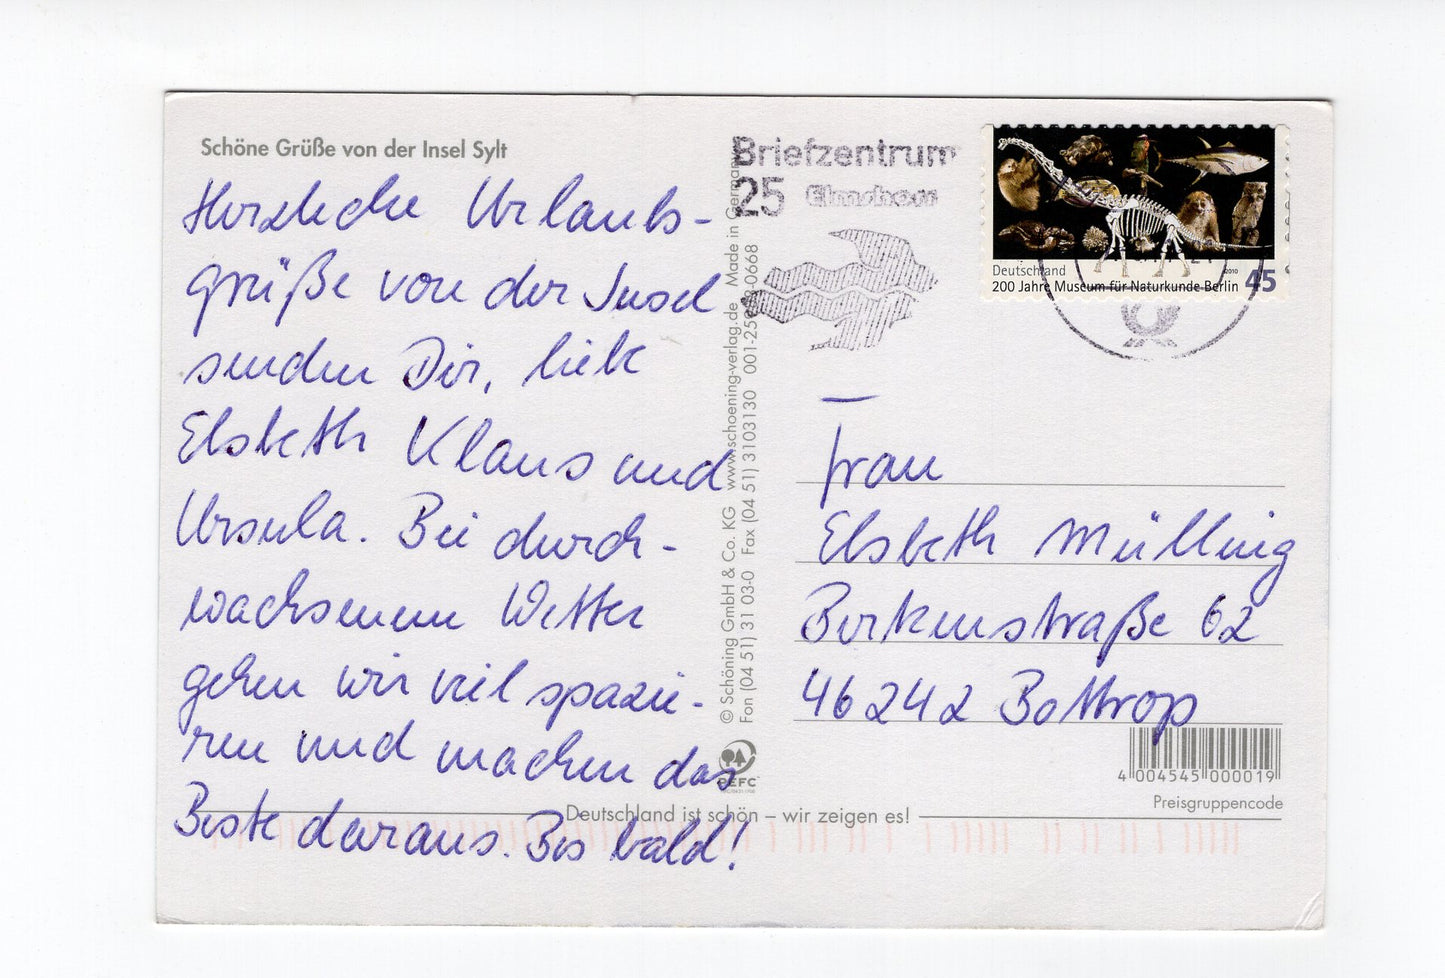 Schöne Grüße von der Insel Sylt
Herzliche Urlaubs-
grüße von der Insel
senden Dir, liebe
Elsbeth Klaus und
Ursula. Bei durch-
wachsenem Wetter
gehen wir viel spazie-
ren und machen das
Beste daraus. Bis bald!
Briefzentrum
25 Elmshorn
Deutschland
2010
45
200 Jahre Museum für Naturkunde Berlin
Frau
Elsbeth Mülling
Birkenstraße 62
46242 Bottrop
© Schöning GmbH & Co. KG www.schoening-verlag.de Made in Germany
Fon (04 51) 31 03-0 Fax (04 51) 3103130
PEFC
4 004545 000019
Preisgruppencode
Deutschland ist schön – wir zeigen es!